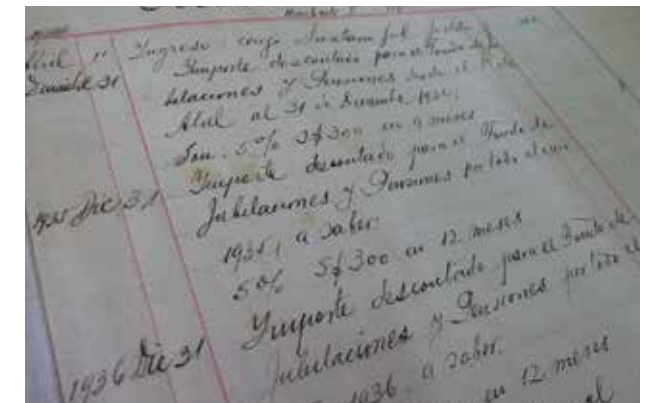 Abril 1º Ingreso como
Diciembre 31 Importe descontado para el Fondo de Ju
bilaciones y Pensiones desde el 1º de
Abril al 31 de Diciembre 1934,
5% S$ 300 en 9 meses
1935 Dic 31 Importe descontado para el Fondo de
Jubilaciones y Pensiones por todo el año
1935, a saber:
5% S$ 300 en 12 meses
1936 Dic 31 Importe descontado para el Fondo de
Jubilaciones y Pensiones por todo el
1936, a saber:
en 12 meses